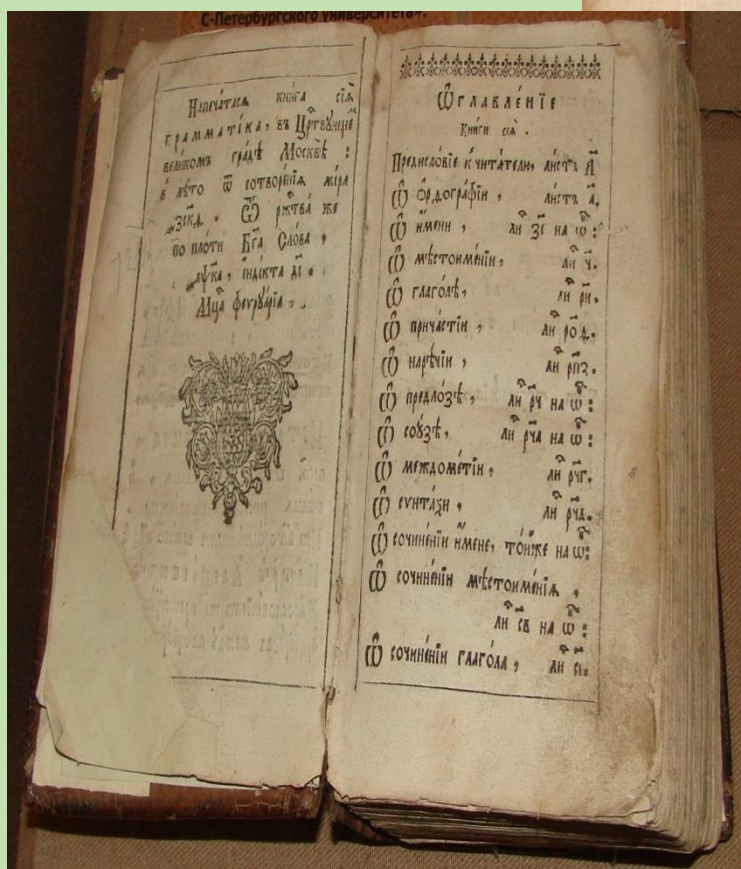 С-Петербургского университета».
Напеча́тася кни́га сїѧ̀
грамматі́ка, въ Црⷭ҇твꙋющемъ
вели́комъ гра́дѣ Москвѣ̀ :
в̾ лѣ́то ѿ сотворе́нїѧ мі́ра
҂зск҃д . Ѿ ржⷭ҇тва́ же
по пло́ти Бг҃а Сло́ва ,
҂аѱк҃а , їнді́кта д҃і .
Мцⷭ҇а феврꙋа́рїа .
Ѡ҆главле́нїе
Кни́ги сеѧ̀ .
Предисло́вїе к̾ чита́телю, ли́стъ а҃
Ѽ ѻ҆рѳогра́фїи , ли́стъ а҃.
Ѽ и҆́мени , лиⷭ҇ з҃і на ѡ҆боⷬ҇:
Ѽ мѣстоиме́нїи , лиⷭ҇ ч҃.
Ѽ глаго́лѣ , лиⷭ҇ р҃и.
Ѽ прича́стїи , лиⷭ҇ ро҃д.
Ѽ нарѣ́чїи , лиⷭ҇ рп҃з.
Ѽ предло́зѣ , лиⷭ҇ рч҃ на ѡ҆боⷬ҇:
Ѽ сою́зѣ , лиⷭ҇ рч҃а на ѡ҆боⷬ҇:
Ѽ междоме́тїи , лиⷭ҇ рч҃г.
Ѽ сѵнта́ѯи , лиⷭ҇ рч҃д.
Ѽ сочине́нїи и҆́мене, то́йже на ѡ҆боⷬ҇:
Ѽ сочине́нїи мѣстоиме́нїѧ ,
лиⷭ҇ с҃в на ѡ҆боⷬ҇:
Ѽ сочине́нїи глаго́ла , лиⷭ҇ с҃і.